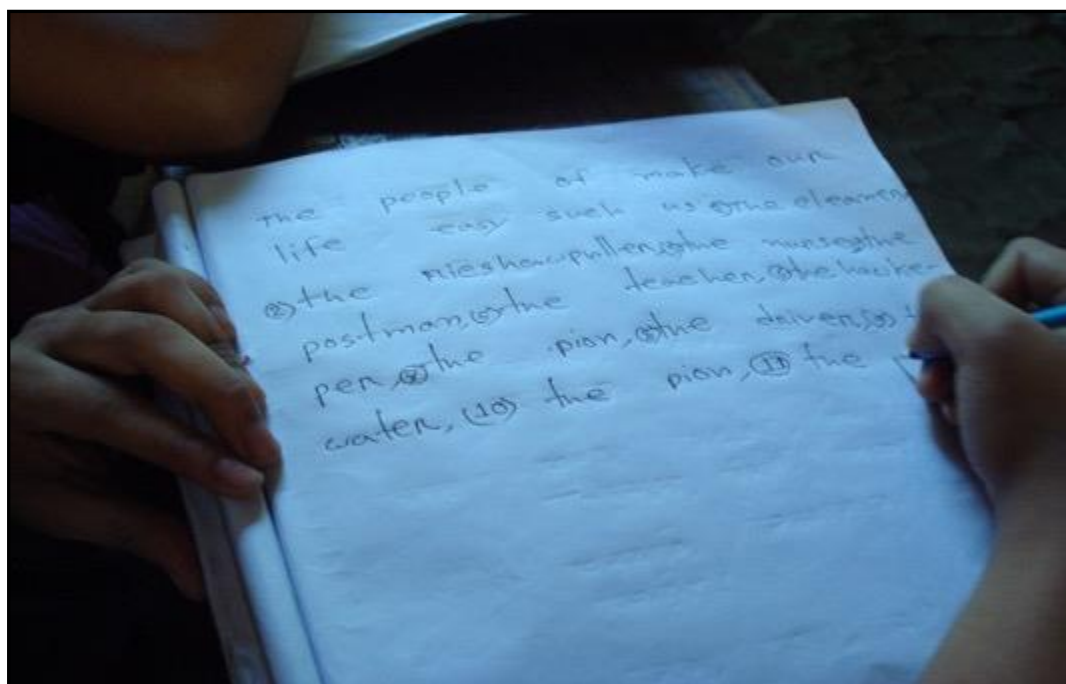 The people of make our
life easy such as ①the cleaner
②the rieshawpuller,③the nurse④the
postman,⑤the teacher,⑥the hawke-
per,⑦the pion,⑧the driver,⑨
water, (10) the pion, ⑪ the